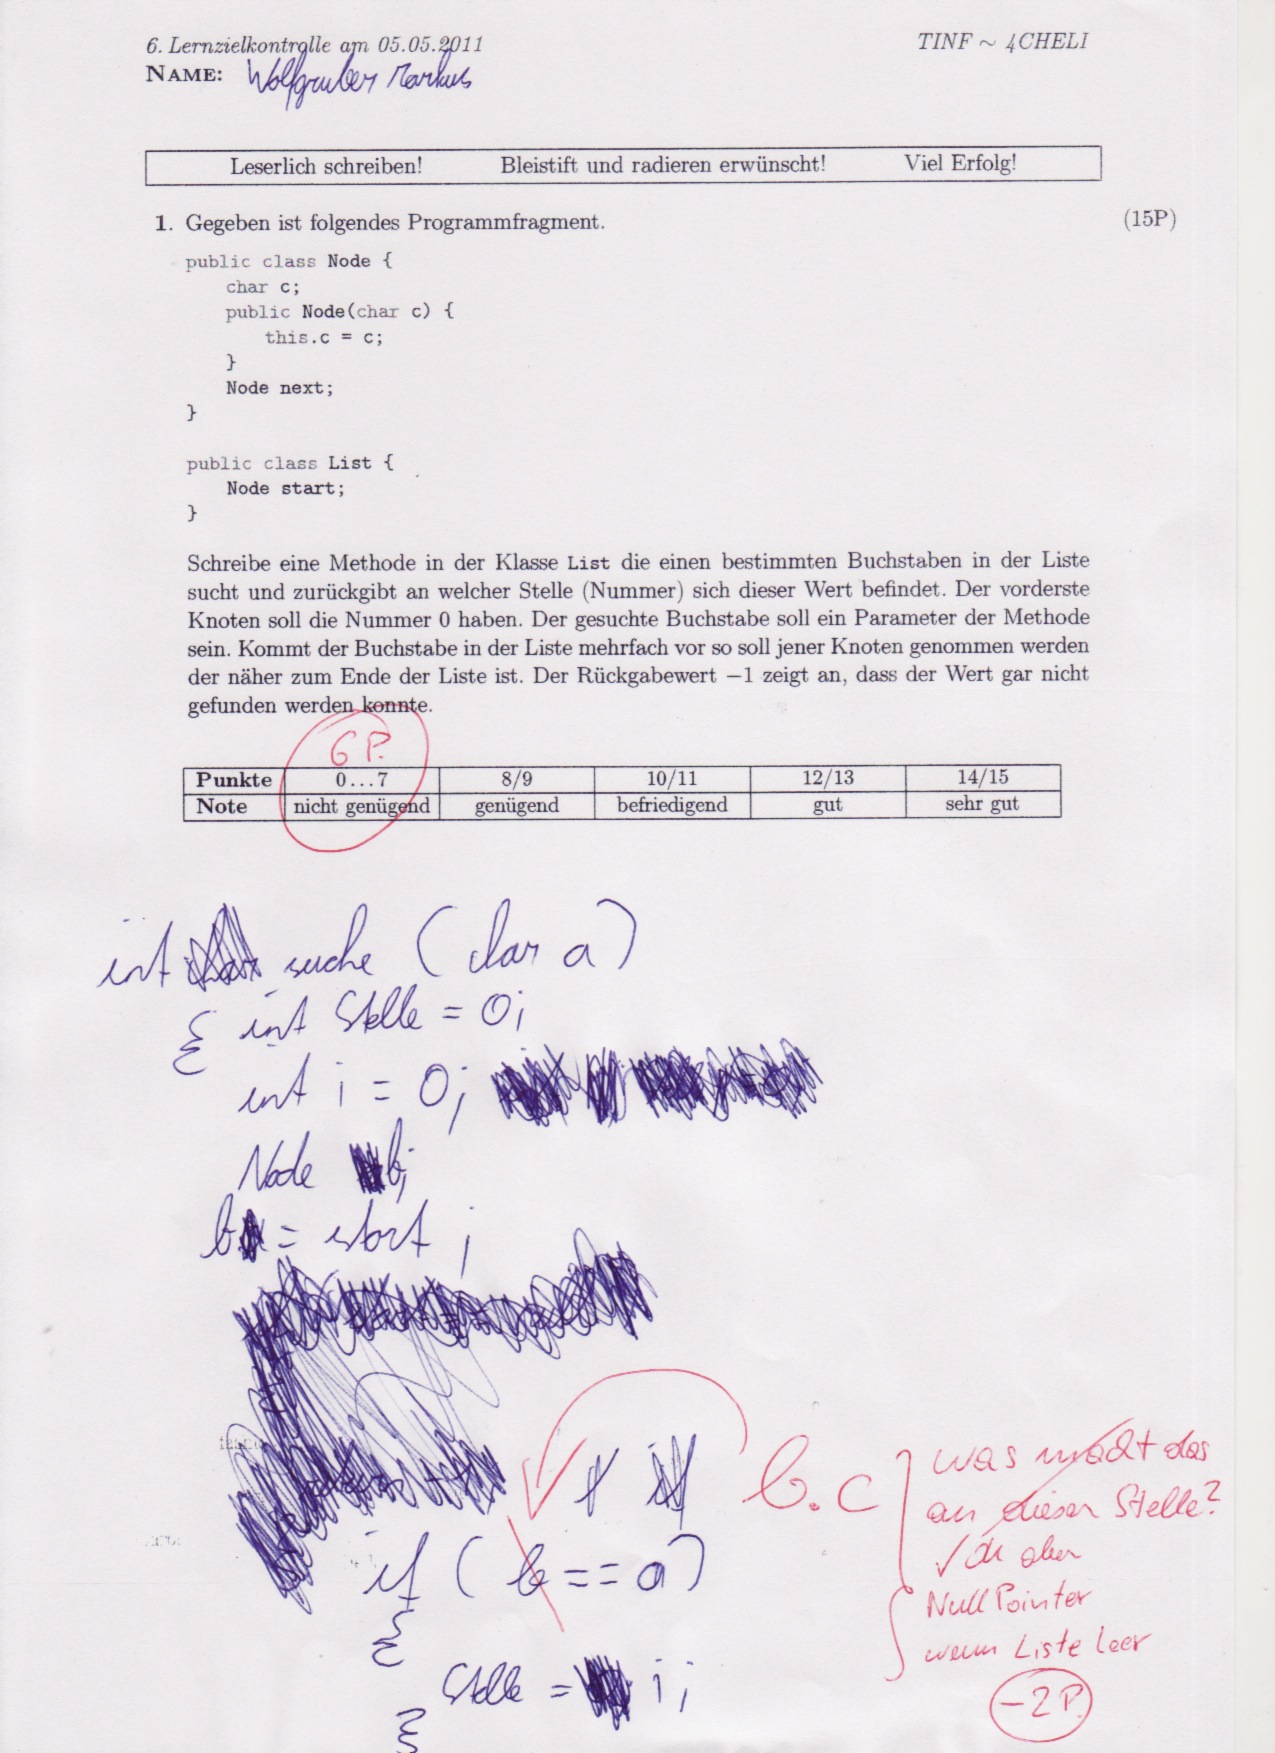 6. Lernzielkontrolle am 05.05.2011 TINF ~ 4CHELI
NAME: Wolfgruber Markus
Leserlich schreiben! Bleistift und radieren erwünscht! Viel Erfolg!
1. Gegeben ist folgendes Programmfragment. (15P)
public class Node {
char c;
public Node(char c) {
this.c = c;
}
Node next;
}
public class List {
Node start;
}
Schreibe eine Methode in der Klasse List die einen bestimmten Buchstaben in der Liste
sucht und zurückgibt an welcher Stelle (Nummer) sich dieser Wert befindet. Der vorderste
Knoten soll die Nummer 0 haben. Der gesuchte Buchstabe soll ein Parameter der Methode
sein. Kommt der Buchstabe in der Liste mehrfach vor so soll jener Knoten genommen werden
der näher zum Ende der Liste ist. Der Rückgabewert −1 zeigt an, dass der Wert gar nicht
gefunden werden konnte.
6 P.
Punkte 0...7 8/9 10/11 12/13 14/15
Note nicht genügend genügend befriedigend gut sehr gut
int suche (char a)
{ int Stelle = 0;
int i = 0;
Node b;
b = start;
b.c
was macht das
an dieser Stelle?
✓ ok aber
if (b == a)
NullPointer
{
wenn Liste leer
Stelle = i;
-2P.
}